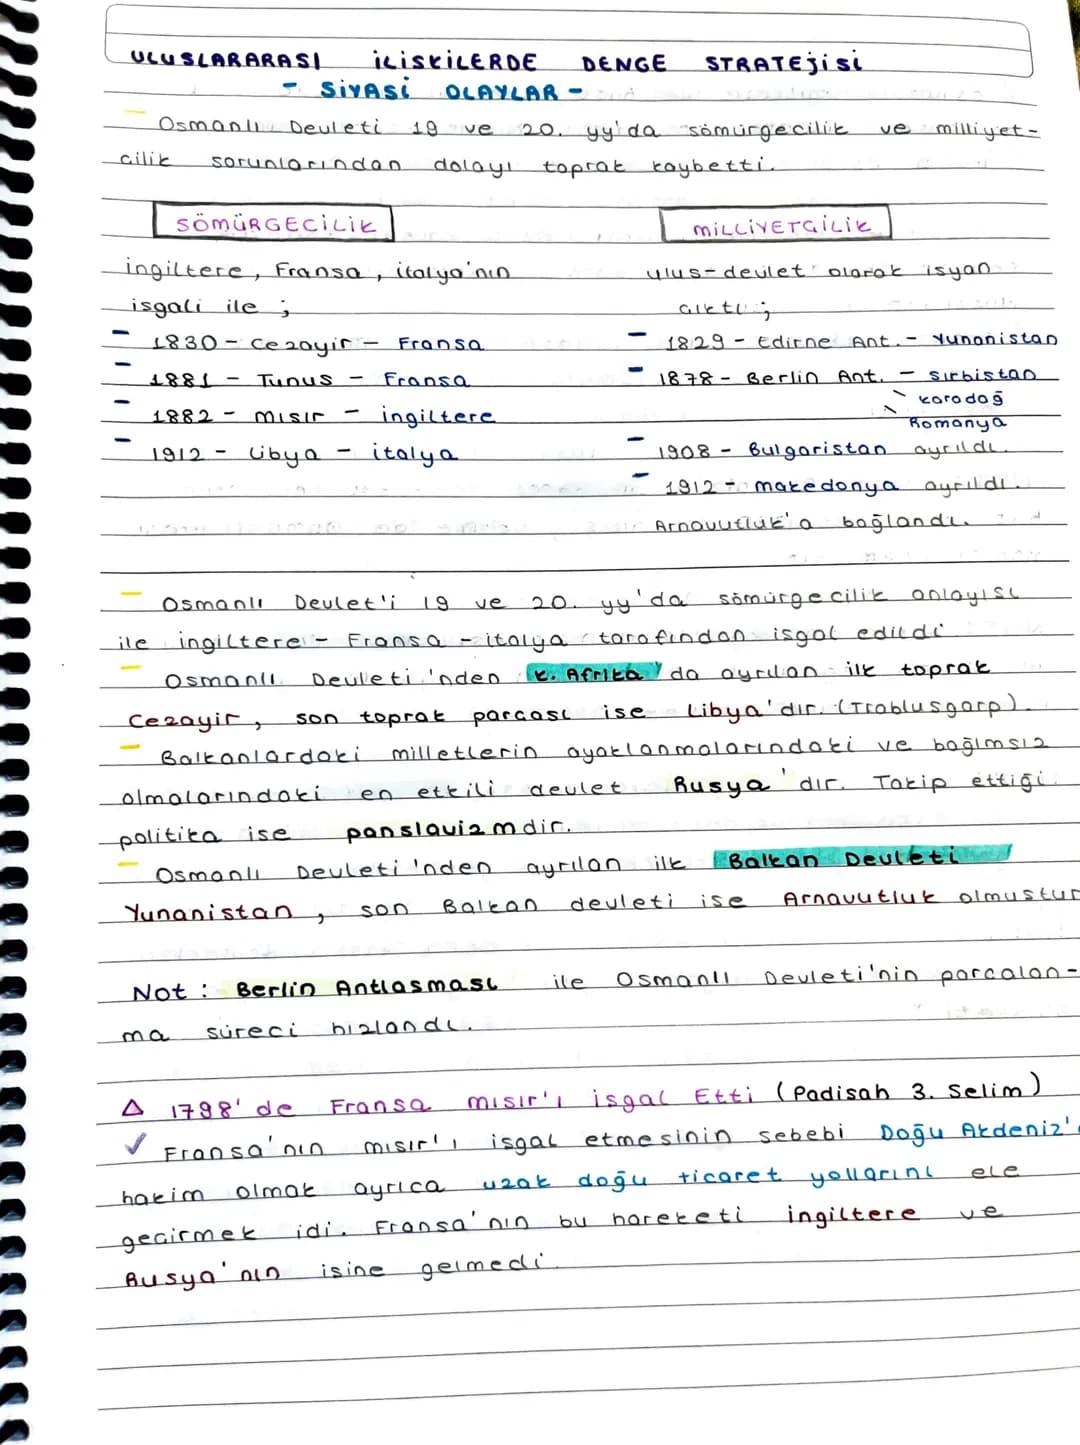 ULUSLARARASI İLİSKİLERDE DENGE STRATEJİSİ
- SİYASİ OLAYLAR -
Osmanlı Devleti 19 ve 20. yy'da sömürgecilik ve milliyet-
cilik sorunlarından dolayı toprak kaybetti.
SÖMÜRGECİLİK
ingiltere, Fransa, italya'nın
isgali ile ;
- 1830 - Cezayir - Fransa
- 1881 - Tunus - Fransa
- 1882 - mısır - ingiltere
- 1912 - Libya - italya
MİLLİYETÇİLİK
ulus-devlet olarak isyan
cıktı ;
- 1829 - Edirne Ant. - Yunanistan
- 1878 - Berlin Ant. - sırbistan
karadağ
Romanya
- 1908 - Bulgaristan ayrıldı.
- 1912 - makedonya ayrıldı.
Arnavutluk'a bağlandı.
- Osmanlı Devlet'i 19 ve 20. yy'da sömürgecilik anlayısı
ile ingiltere - Fransa - italya tarafından isgal edildi
- Osmanlı Devleti'nden K. Afrika'da ayrılan ilk toprak
Cezayir, son toprak parcası ise Libya'dır. (Trablusgarp).
- Balkanlardaki milletlerin ayaklanmalarındaki ve bağımsız
olmalarındaki en etkili devlet Rusya'dır. Takip ettiği
politika ise panslavizmdir.
- Osmanlı Devleti'nden ayrılan ilk Balkan Devleti
Yunanistan, son Balkan devleti ise Arnavutluk olmustur
Not : Berlin Antlasması ile Osmanlı Devleti'nin parcalan-
ma süreci hızlandı.
△ 1798'de Fransa mısır'ı isgal Etti (Padisah 3. Selim)
✓ Fransa'nın mısır'ı isgal etmesinin sebebi Doğu Akdeniz'e
hakim olmak ayrıca uzak doğu ticaret yollarını ele
gecirmek idi. Fransa'nın bu hareketi ingiltere ve
Rusya'nın isine gelmedi.